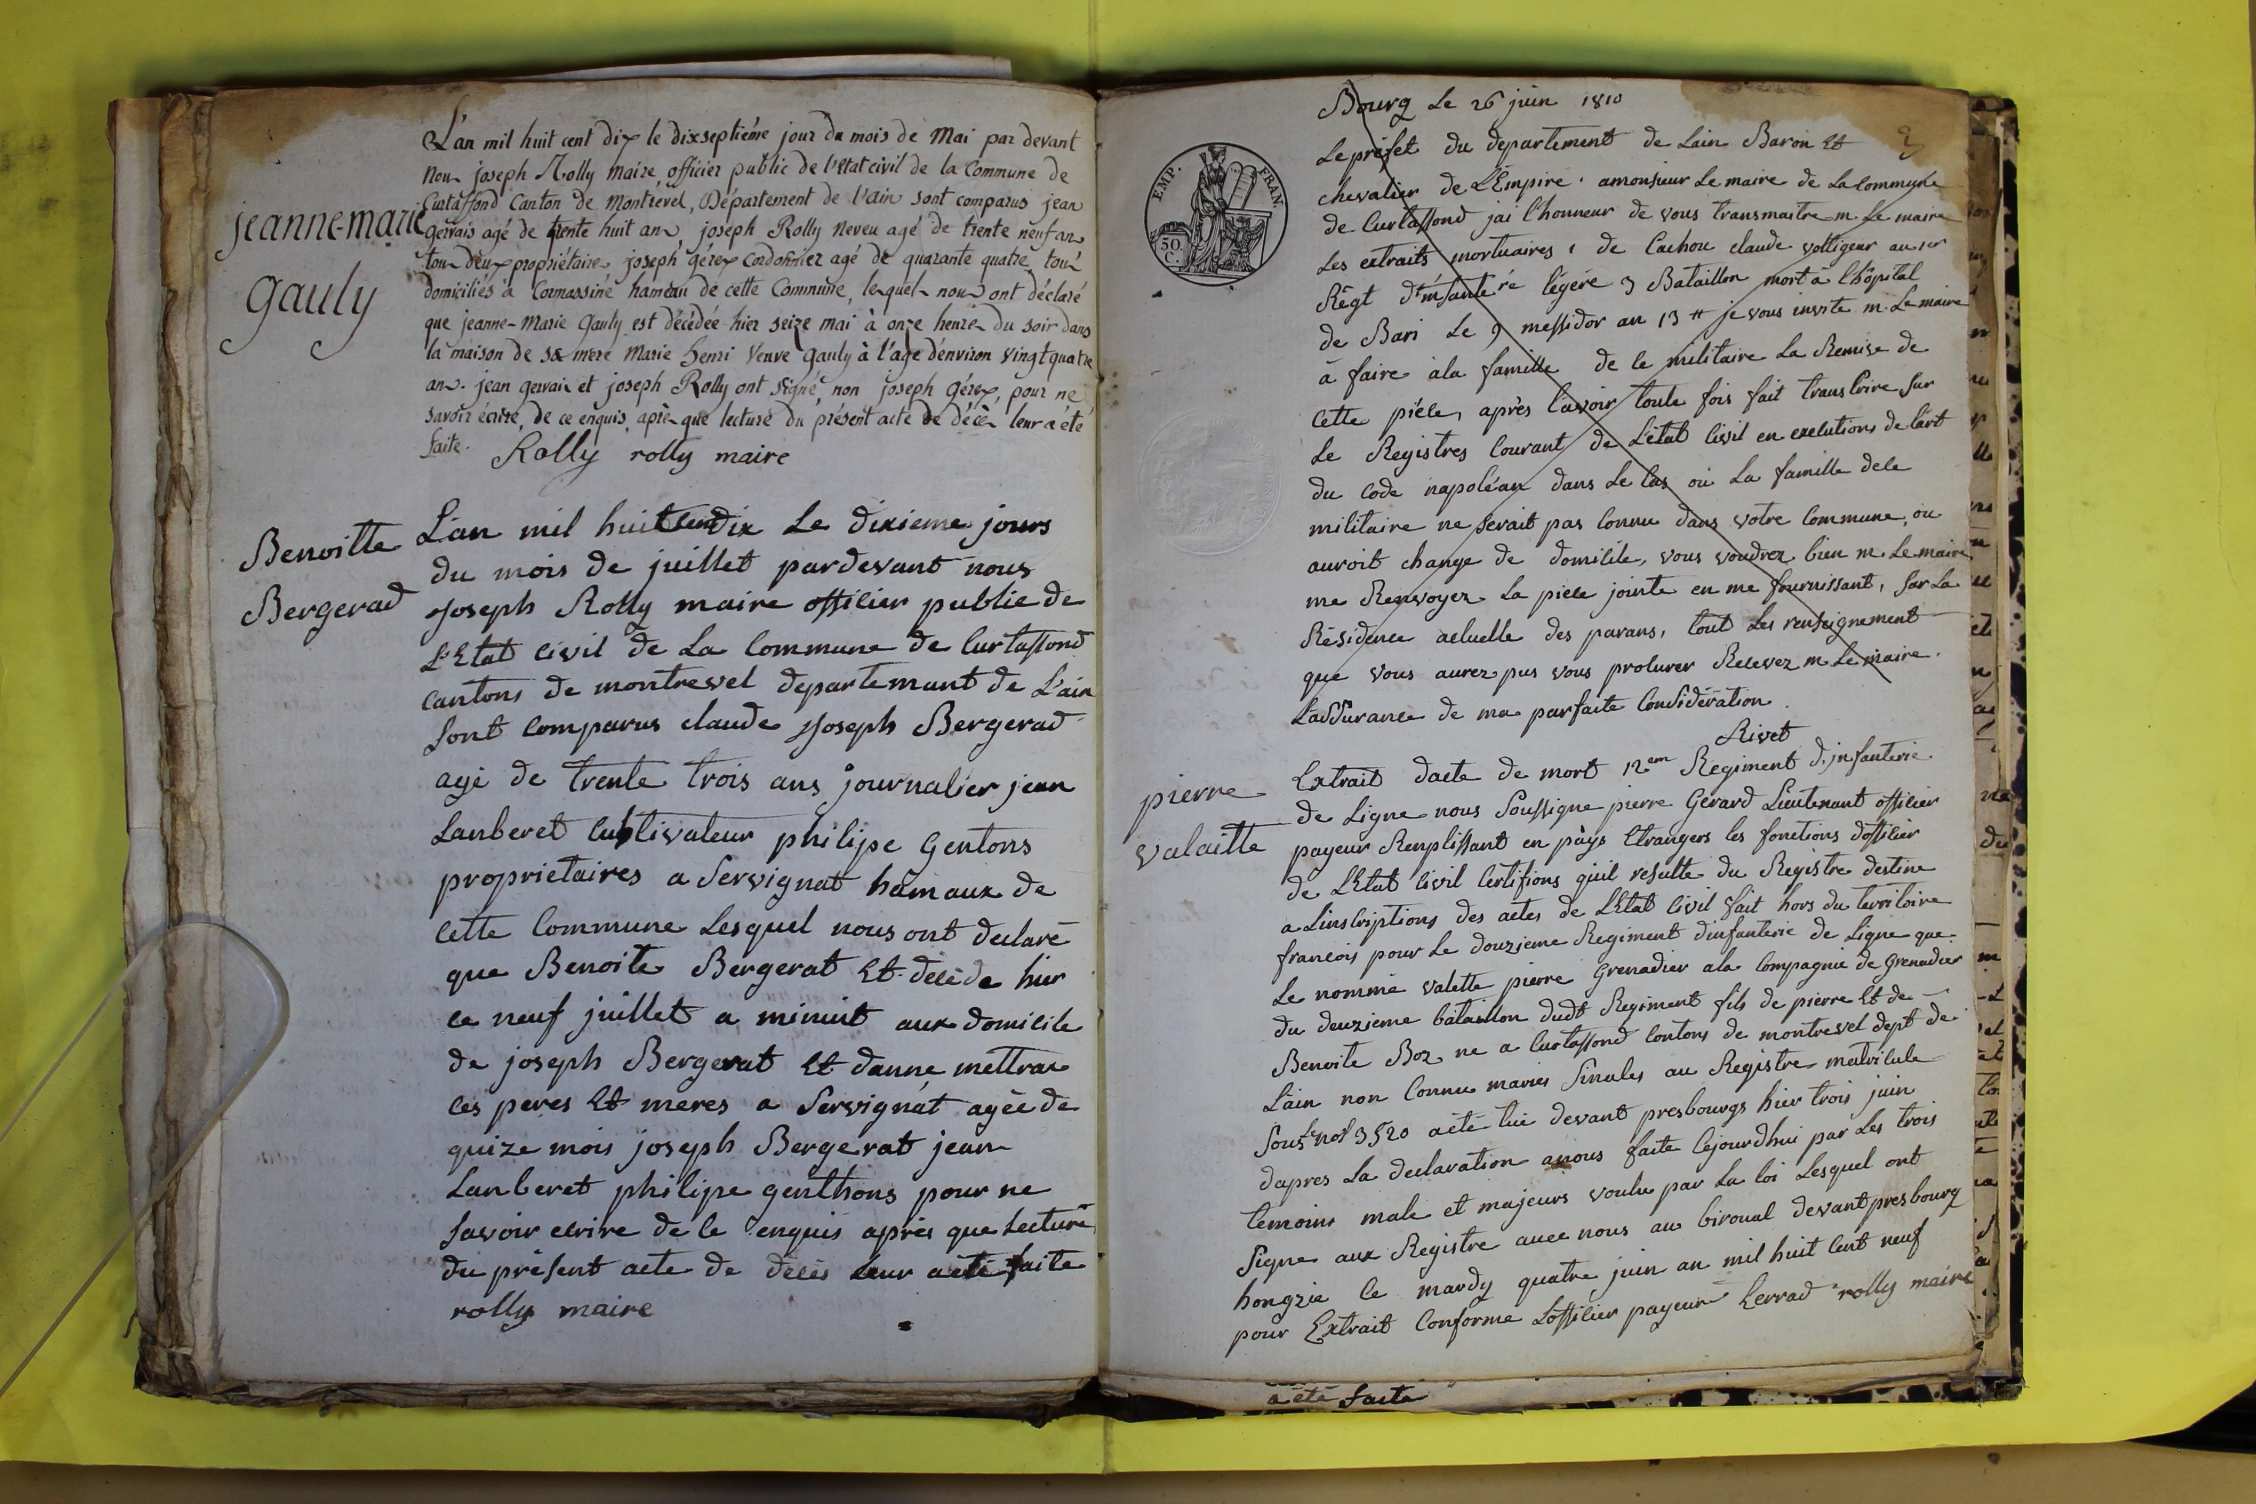 L'an mil huit cent dix le dixseptiéme jour du mois de Mai par devant
Nous joseph Rolly maire officier public de l'Etat civil de la Commune de
Curtaffond Canton de Montrevel, Département de l'ain sont comparus jean
jeanne-marie
gauly
gervais agé de trente huit ans, joseph Rolly Neveu agé de trente neuf ans
tous deux propriétaires, joseph gérez Cordonnier agé de quarante quatre, tous
domiciliés à Cormassiné hameau de cette Commune, lesquels nous ont déclaré
que jeanne-Marie Gauly est décédée hier seize mai à onze heures du soir dans
la maison de sa mere Marie Henri Veuve Gauly à l'age d'environ vingt quatre
ans. jean gervais et joseph Rolly ont signé non joseph gérez, pour ne
savoir écrire, de ce enquis, après que lecture du présent acte de décès leur a été
faite.
Rolly rolly maire
Benoitte
Bergerad
L'an mil huit cent dix Le dixieme jours
du mois de juillet pardevant nous
joseph Rolly maire officier public de
L'Etat civil de La Commune de Curtaffond
cantons de montrevel departemant de L'ain
Sont Comparus claude joseph Bergerad
agé de trente trois ans journalier jean
Lanberet Cultivateur philipe Gentons
propriétaires a Servignat hamaux de
Cette Commune Lesquel nous ont declaré
que Benoite Bergerat Et décéde hier
ce neuf juillet a minuit aux domicile
de joseph Bergerat Et danne mettrax
ces peres Et meres a Servignat agée de
quize mois joseph Bergerat jean
Lanberet philipe genthons pour ne
Savoir ecrire de ce enquis après que Lecture
du présent acte de décès Leur a été faite
rolly maire
EMP. FRAN.
50. C.
Bourg Le 26 juin 1810
3
Le préfet du departement de Lain Baron Et
chevalier de L'Empire. amonsieur Le maire de La Commune
de Curtaffond jai l'honneur de vous transmaitre m. Le maire
Les extraits mortuaires, de Cachou claude voltigeur au 1er
Régt d'infanteré légére 3 Bataillon mort à l'hôpital
de Bari Le 9 messidor an 13 # je vous invite m. Le maire
à faire à la famille de ce militaire La Remise de
Cette piéce, après l'avoir toute fois fait transcrire Sur
Le Registres Courant de L'état Civil en execution de l'art
du code napoléan dans Le Cas où La famille de ce
militaire ne serait pas Connu dans votre Commune, ou
auroit change de domicile, vous voudrez bien m. Le maire
me Renvoyer La piece jointe en me fournissant, Sur La
Résidence actuelle des parans, tout Les renseignement
que vous aurez pus vous procurer Recevez m. Le maire.
L'assurance de ma parfaite Considération
Rivet
pierre
valaitte
Extrait dacte de mort 12em Regiment d'infanterie
de Ligne nous Soussigne pierre Gerard Lieutenant officier
payeur Remplissant en pàys Etrangers les fonctions dofficier
de L'Etat Civil Certifions quil resulte du Registre destine
a Linscriptions des actes de L'Etat Civil fait hors du territoire
francois pour Le douzieme Regiment dinfanterie de Ligne que
Le nommé valette pierre Grenadier a la Compagnie de Grenadier
du deuzieme bataillon dudt Regiment fils de pierre Et de
Benoite Boz ne a Curtaffond Contons de montrevel dept de
L'ain non Connu maries Sinules au Registre matricule
Sous Le no 3520 a été tué devant presbourgs hier trois juin
dapres La declaration anous faite Cejourdhui par Les trois
temoins male et majeurs voulu par La loi Lesquel ont
Signe aux Registre avec nous au birouat devant presbourg
hongrie Ce mardy quatre juin an mil huit Cent neuf
pour Extrait Conforme L'officier payeur Gerrad rolly maire
a été faite